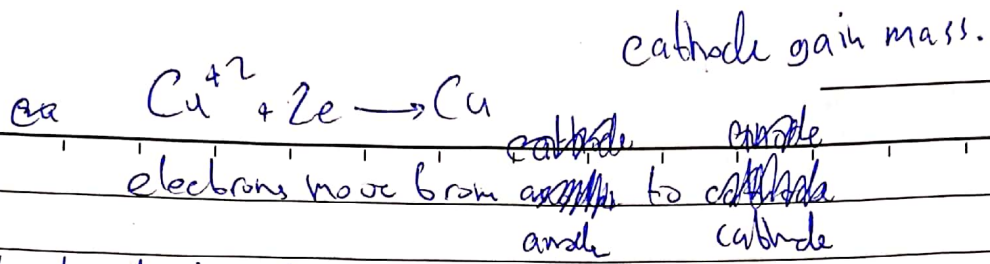 cathode gain mass.
Cu⁺² + 2e → Cu
cathode anode
electrons move from to cathode
anode cathode